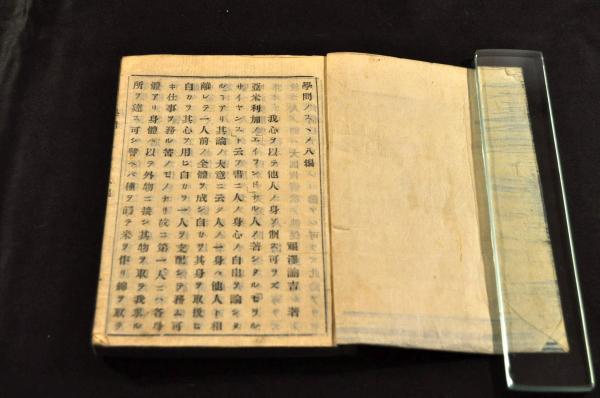 學問ノスヽメ八編
福澤諭吉 著
我心ヲ以テ他人ノ身ヲ制ス可ラズ
亞米利加ノエイランドナル人ノ著シタルモラル
サイヤンスト云フ書ニ人ノ身心ノ自由ヲ論ジタ
ルコアリ其論ノ大意ニ云ク人ノ一身ハ他人ト相
離レテ一人前ノ全體ヲ成シ自カラ其身ヲ取扱ヒ
自カラ其心ヲ用ヒ自カラ一人ヲ支配シテ務ム可
キ仕事ヲ務ル筈ノモノナリ故ニ第一人ニハ各身
體アリ身體ハ以テ外物ニ接シ其物ヲ取テ我求ル
所ヲ達ス可シ譬ヘバ種ヲ蒔テ米ヲ作リ綿ヲ取テ